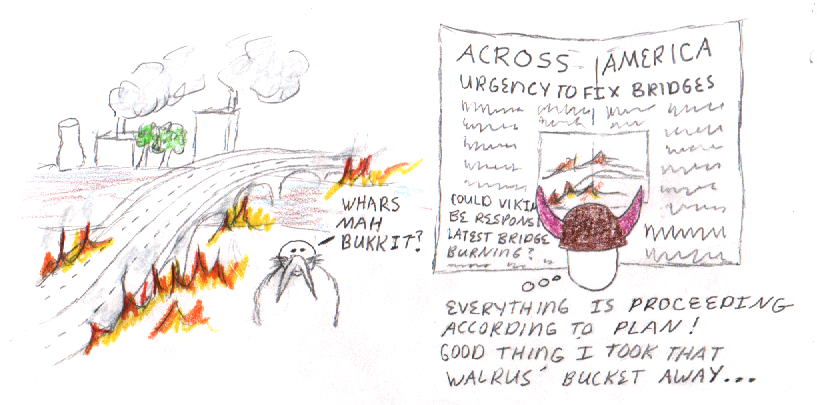 WHARS
MAH
BUKKIT?
ACROSS AMERICA
URGENCY TO FIX BRIDGES
COULD VIKIN
BE RESPONSI
LATEST BRIDGE
BURNING?
EVERYTHING IS PROCEEDING
ACCORDING TO PLAN!
GOOD THING I TOOK THAT
WALRUS' BUCKET AWAY...